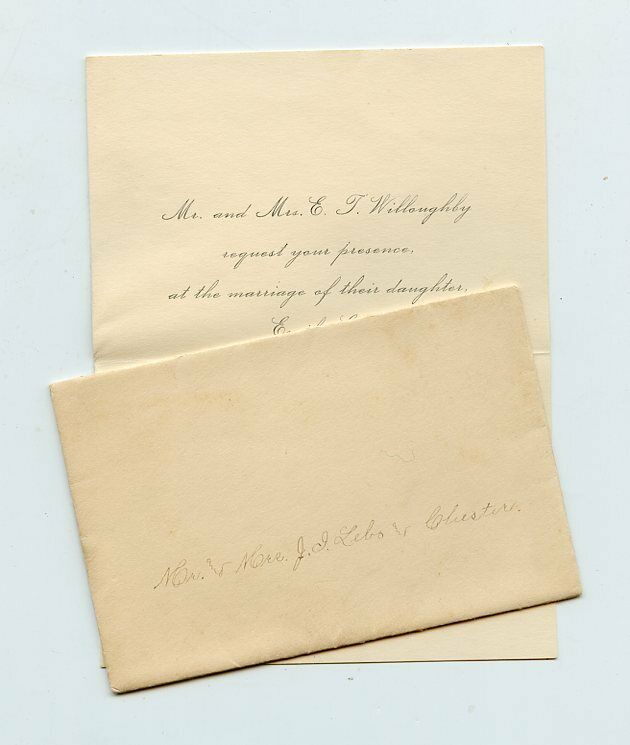 Mr. and Mrs. E. T. Willoughby
request your presence,
at the marriage of their daughter,
Mr. & Mrs. J. I. Lebo & Chester.